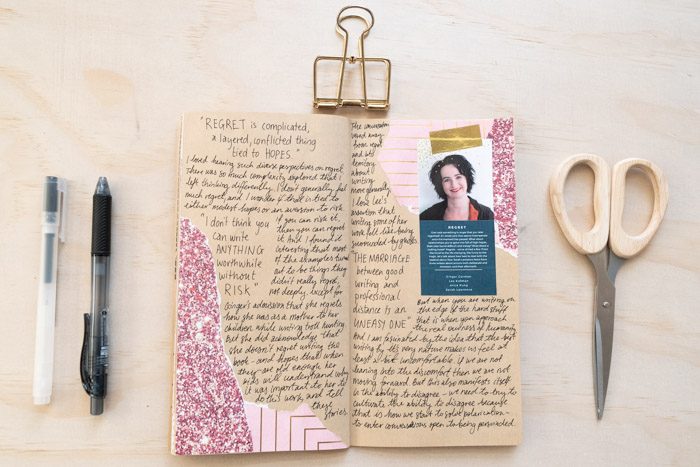 "REGRET is complicated,
a layered, conflicted thing
tied to HOPES."
I loved hearing such diverse perspectives on regret.
There was so much complexity explored that I
left thinking differently. I don't generally feel
much regret, and I wonder if that is tied to
either modest hopes or an aversion to risk.
"I don't think you
can write
ANYTHING
worthwhile
without
RISK"
If you can risk it,
then you can regret
it. And I found it
interesting that most
of the examples turned
out to be things they
didn't really regret,
not deeply, except for
Ginger's admission that she regrets
how she was as a mother to her
children while writing both hunting
but she did acknowledge that
she doesn't regret writing the
book - and hopes that when
they are old enough her
kids will understand why
it was important to her to
do this work and tell
these
stories.
The conversation
moved away
from regret
and into
territory
about
writing
more generally
I love Lee's
assertion that
writing some of her
work felt like being
surrounded by ghosts.
THE MARRIAGE
between good
writing and
professional
distance is an
UNEASY ONE
REGRET
Ginger Gorman
Lee Kofman
Alice Pung
Sarah Lawrence
But when you are writing on
the edge of the hard stuff
that is when you approach
the real rawness of humanity.
And I am fascinated by the idea that the best
writing by its very nature makes us feel at
least a bit uncomfortable. If we are not
leaning into the discomfort then we are not
moving forward. But this also manifests itself
in the ability to disagree - we need to try to
cultivate the ability to disagree because
that is how we start to solve polarisation -
to enter conversations open to being persuaded.